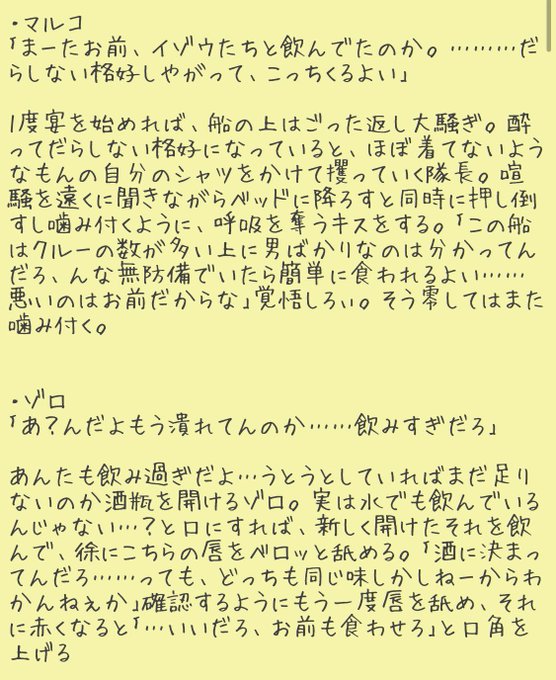 ・マルコ
「まーたお前、イゾウたちと飲んでたのか。………だ
らしない格好しやがって、こっちくるよい」
1度宴を始めれば、船の上はごった返し大騒ぎ。酔
ってだらしない格好になっていると、ほぼ着てないよう
なもんの自分のシャツをかけて攫っていく隊長。喧
騒を遠くに聞きながらベッドに降ろすと同時に押し倒
すし噛み付くように、呼吸を奪うキスをする。「この船
はクルーの数が多い上に男ばかりなのは分かってん
だろ、んな無防備でいたら簡単に食われるよい……
悪いのはお前だからな」覚悟しろぃ。そう零してはまた
噛み付く。
・ゾロ
「あ?んだよもう潰れてんのか……飲みすぎだろ」
あんたも飲み過ぎだよ…うとうとしていればまだ足り
ないのか酒瓶を開けるゾロ。実は水でも飲んでいる
んじゃない…?と口にすれば、新しく開けたそれを飲
んで、徐にこちらの唇をベロッと舐める。「酒に決まっ
てんだろ……っても、どっちも同じ味しかしねーからわ
かんねぇか」確認するようにもう一度唇を舐め、それ
に赤くなると「…いいだろ、お前も食わせろ」と口角を
上げる